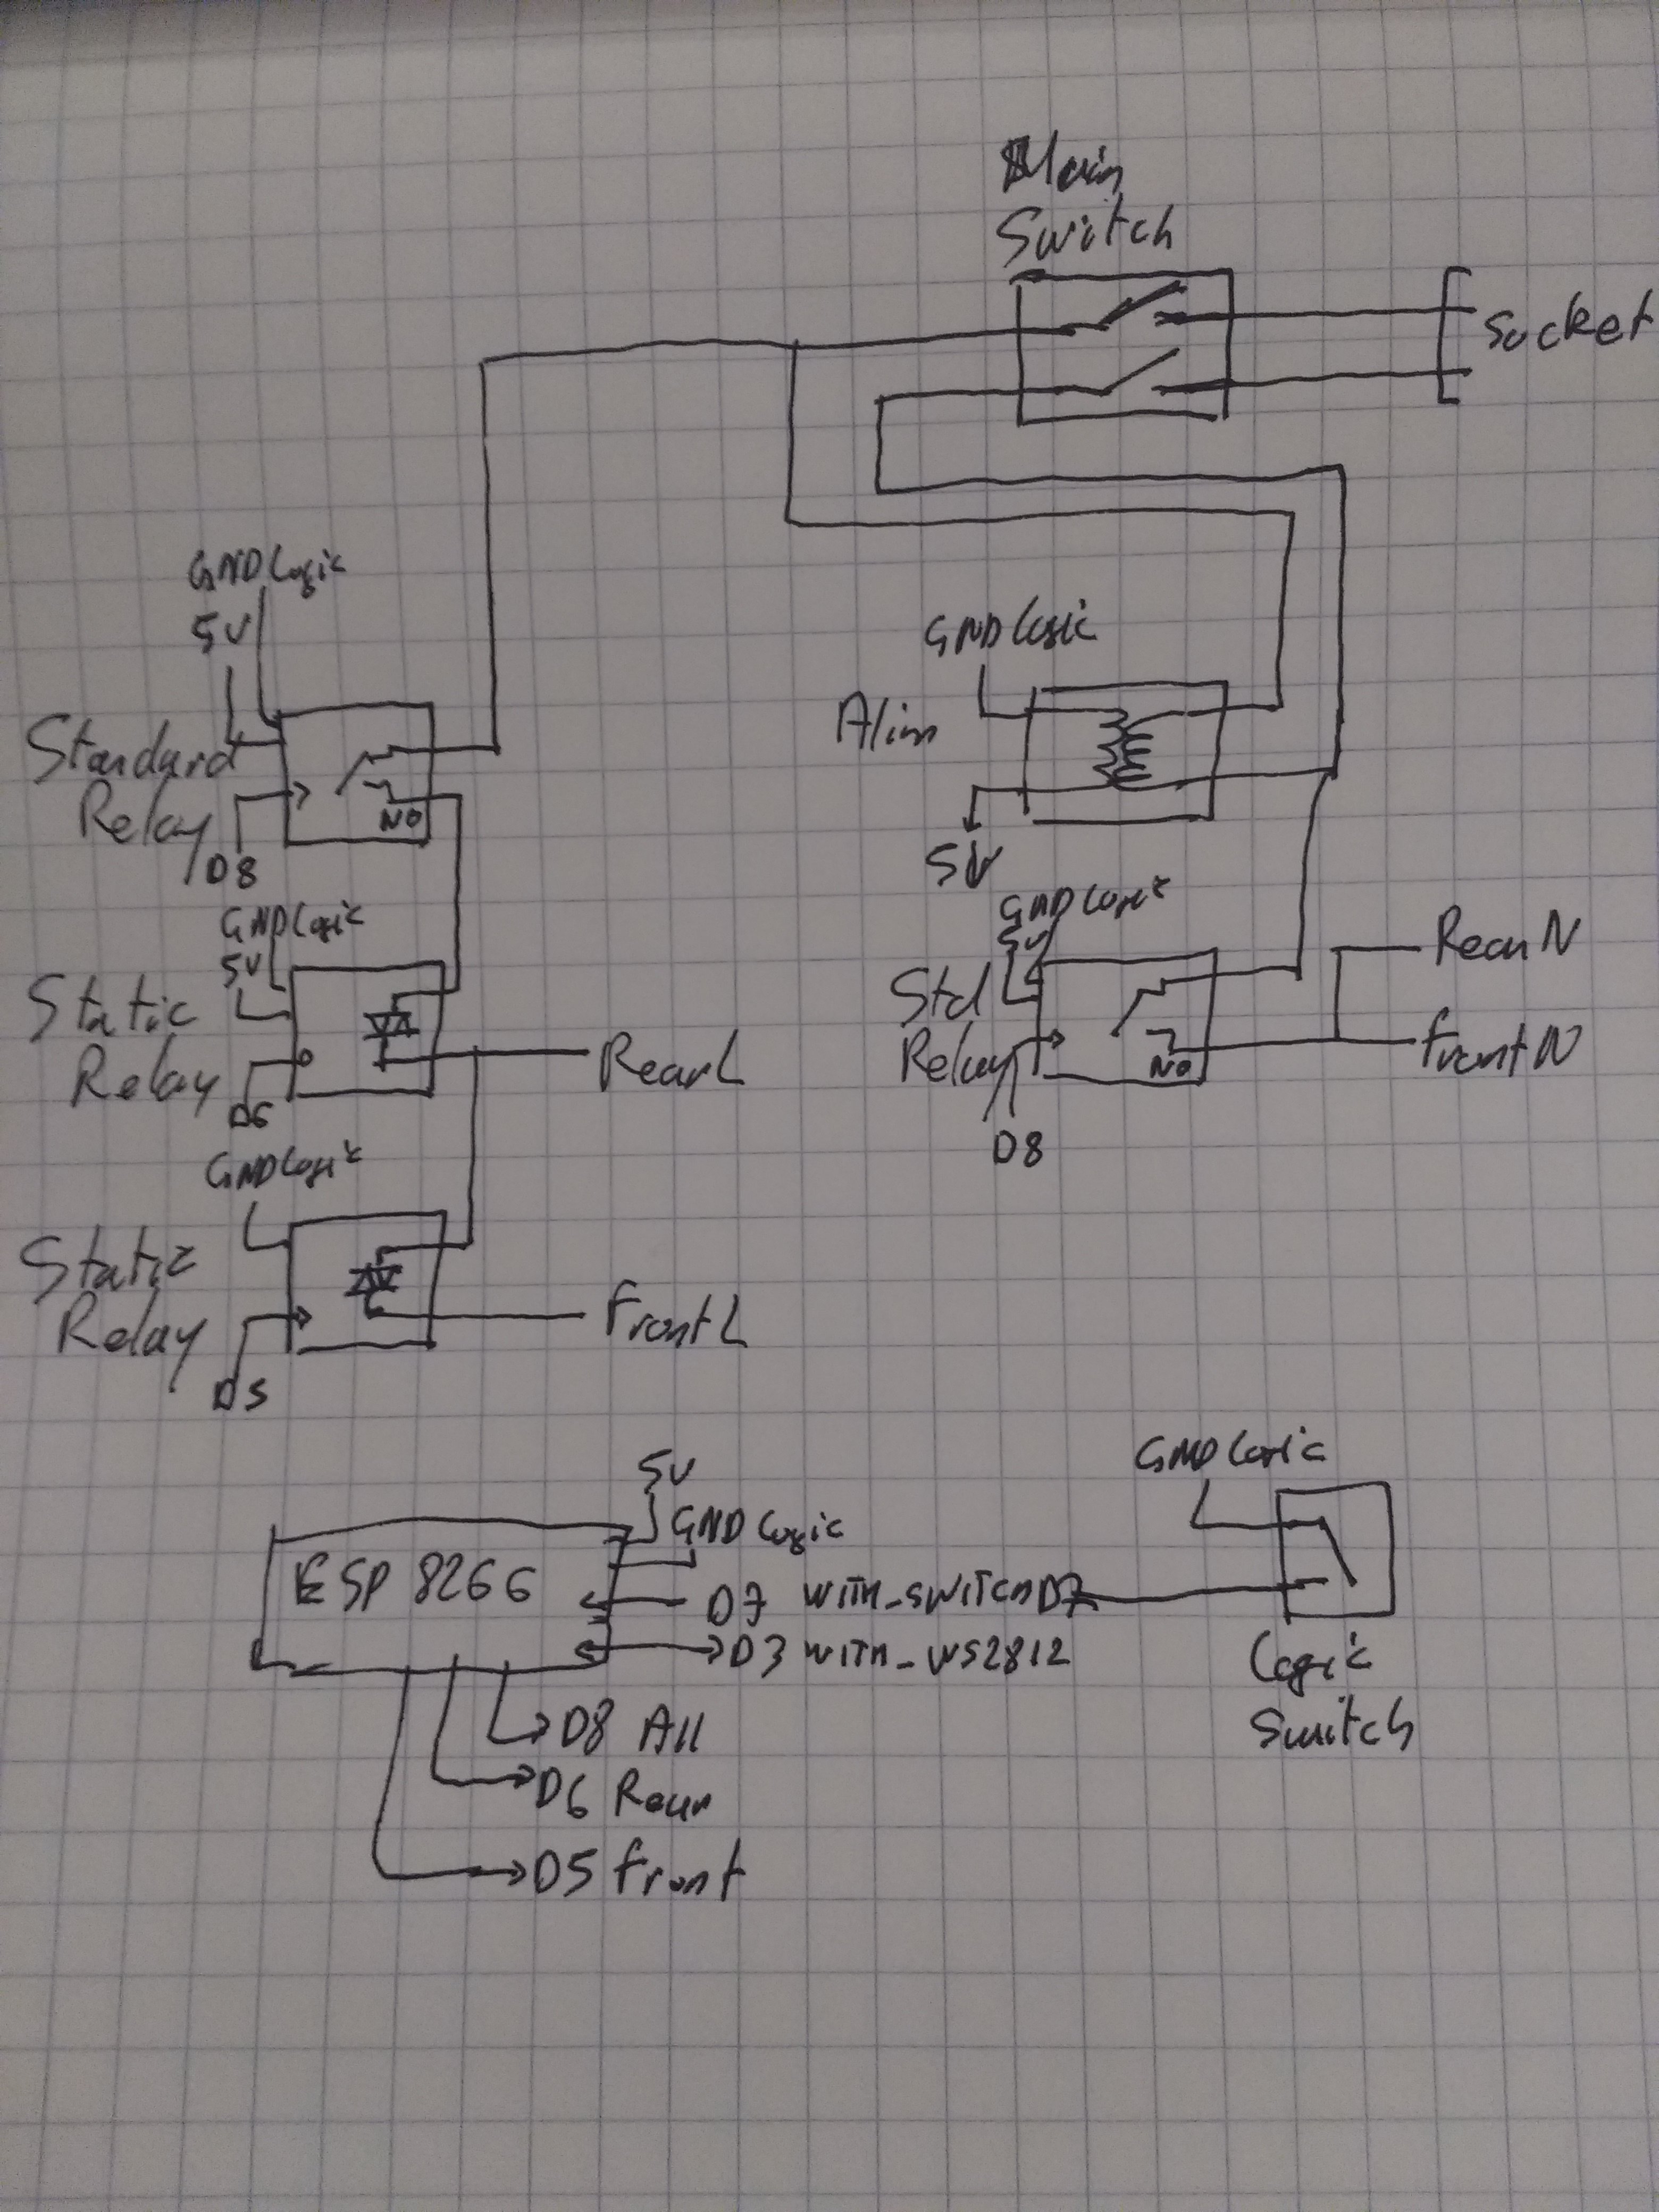 Main
Switch
Socket
GND Logic
5V
Standard
Relay
NO
D8
GND Logic
Alim
5V
GND Logic
5V
Static
Relay
D6
Rear L
GND Logic
5V
Std
Relay
NO
D8
Rear N
Front N
GND Logic
Static
Relay
D5
Front L
5V
GND Logic
ESP 8266
D7 WITH_SWITCH D7
D3 WITH_WS2812
D8 All
D6 Rear
D5 Front
GND Logic
Logic
Switch